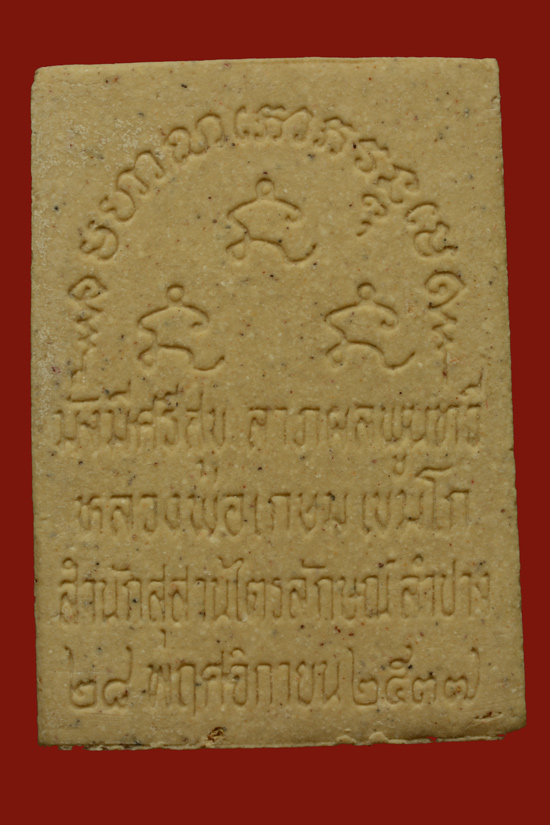 มั่งมีศรีสุข ลาภผลพูนทวี
หลวงพ่อเกษม เขมโก
สำนักสุสานไตรลักษณ์ ลำปาง
๒๘ พฤศจิกายน ๒๕๓๗